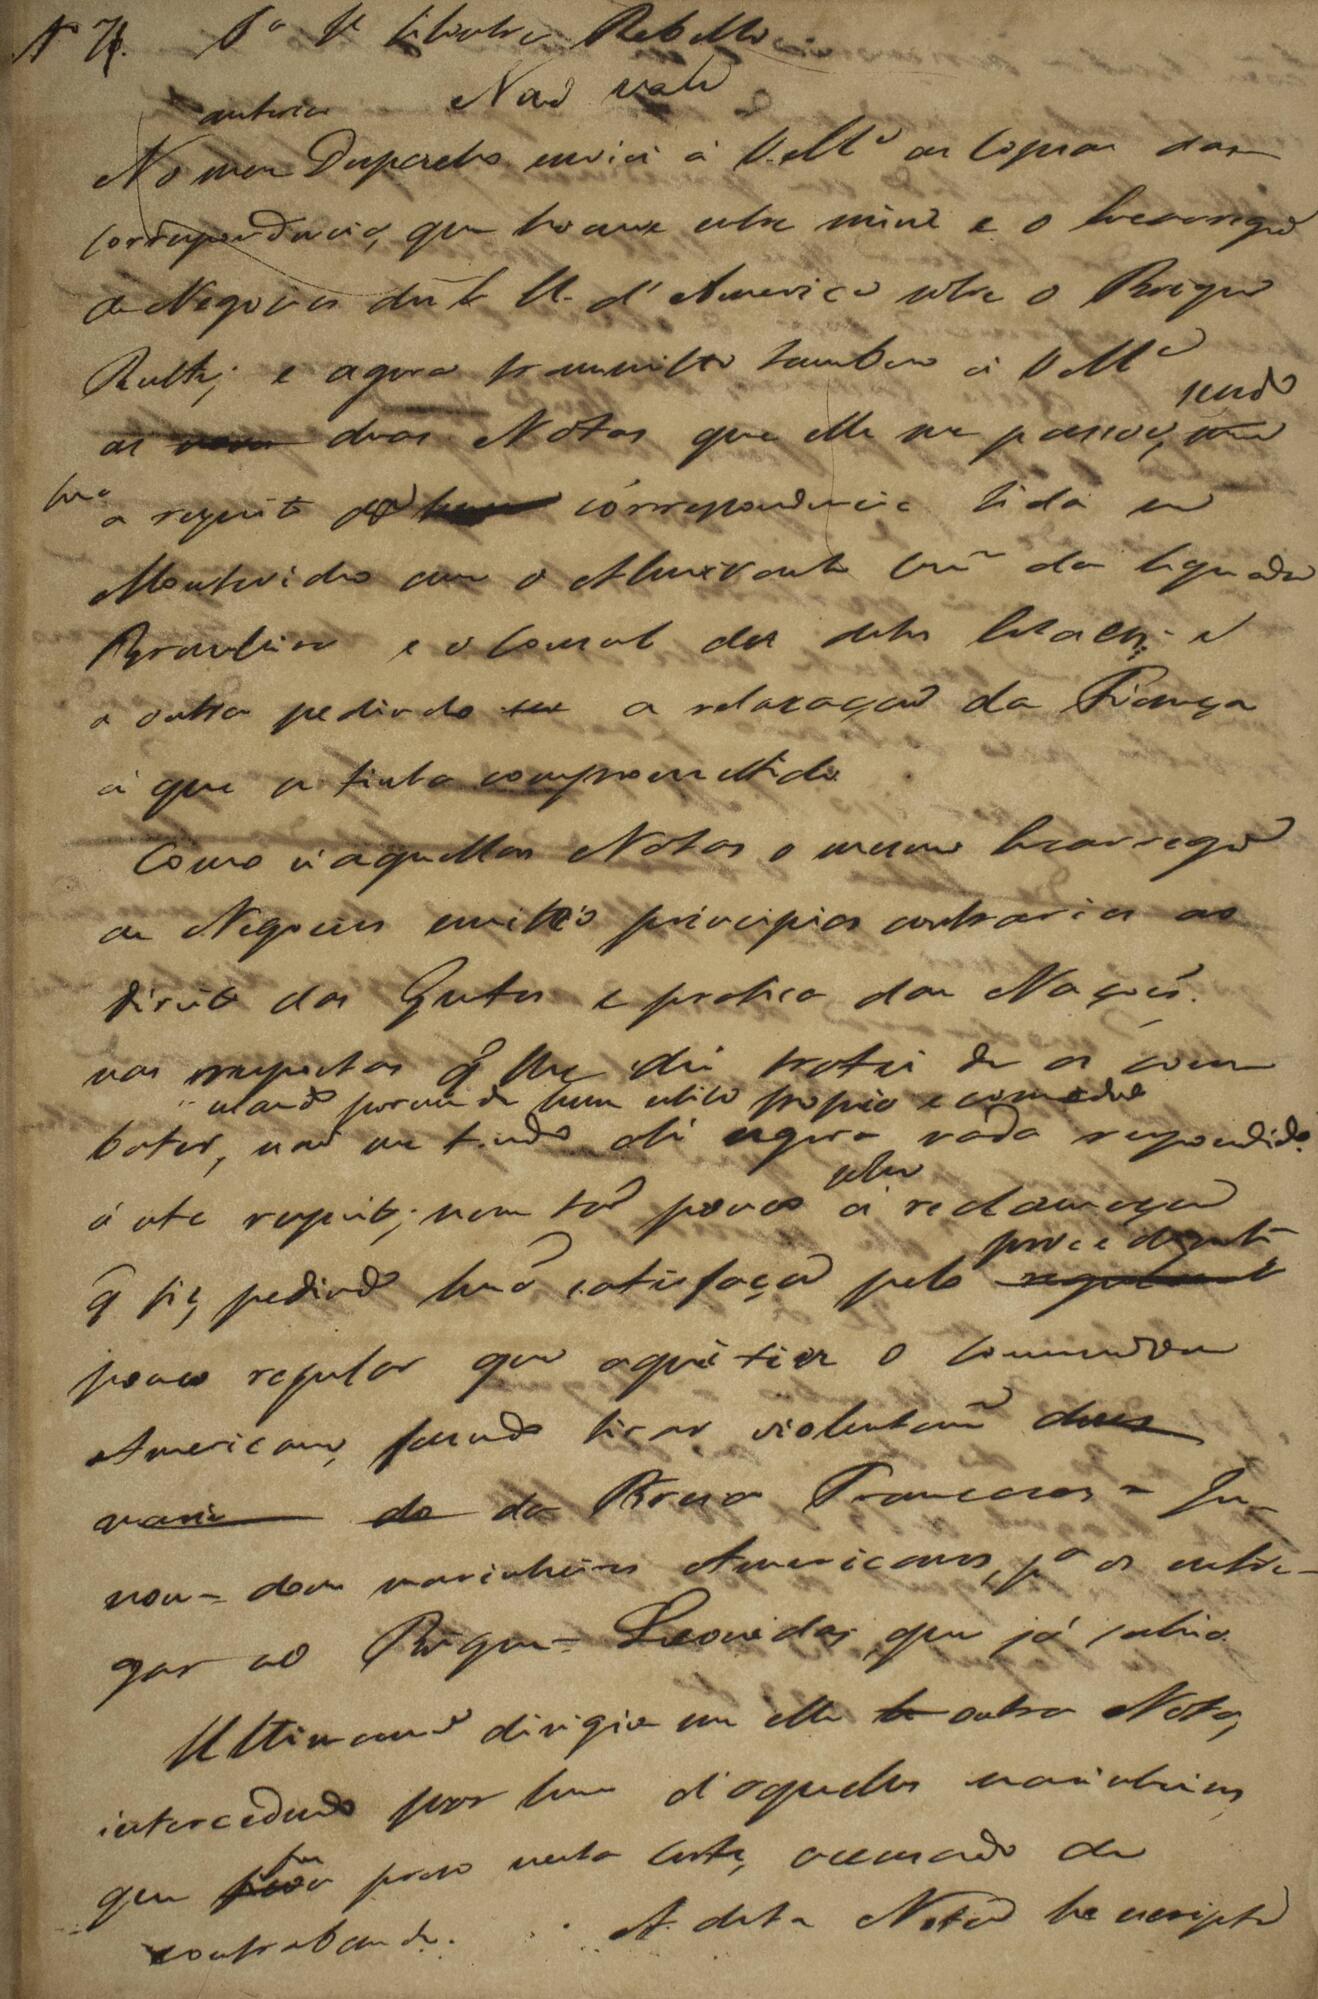 Nº 7. Pª Sr Silvestre Rebello.
Naõ vale
anterior
No meu Despacho enviei á V. Mce as Copias da
correspondencia, que houve entre mim e o Encarregdo
de Negocios dos E. U. d'America sobre o Brigue
Ruth; e agora transmitto tambem á V Mce
sendo
as duas Notas que elle me passou,
hũa
a respeito da correspondencia tida em
Montevideo com o Almirante Comᵉ da Esquadra
Brasileira e o Consul dos ditos Estados; e
a outra pedindo a relaxaçaõ da Fiança
á que se tinha compromettido.
Como n'aquellas Notas o mesmo Encarregdo
de Negocios emittio principios contrarios ao
Direito das Gentes e pratica das Naçoẽs.
nas respostas q̃ lhe dei tratei de os com
usando porem de hum estilo proprio e comedido
bater, naõ me tendo até agora nada respondido
á este respeito; nem taõ pouco á reclamaçaõ
q̃ fiz, pedindo huã satisfaçaõ pelo
procedimto
pouco regular que aqui teve o Commodoro
Americano, fazendo tirar violentamᵉ
da Presa Franceza = Ju-
non = dous marinheiros Americanos, pª os entre-
gar ao Brigue = Leonidas, que já sahio.
Ultimamᵉ dirigio me elle outra Nota,
intercedendo por hum d'aquelles marinheiros
que foi preso nesta Corte, accusado de
contrabando. A dita Nota he escripta